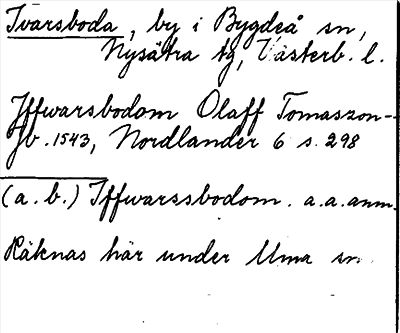 Ivarsboda, by i Bygdeå sn,
Nysätra tg, Västerb. l.
Iffwarsbodom Olaff Tomaszon-
Jb. 1543, Nordlander 6 s. 298
(a. b.) Iffwarssbodom. a.a. anm.
Räknas här under Uma sn